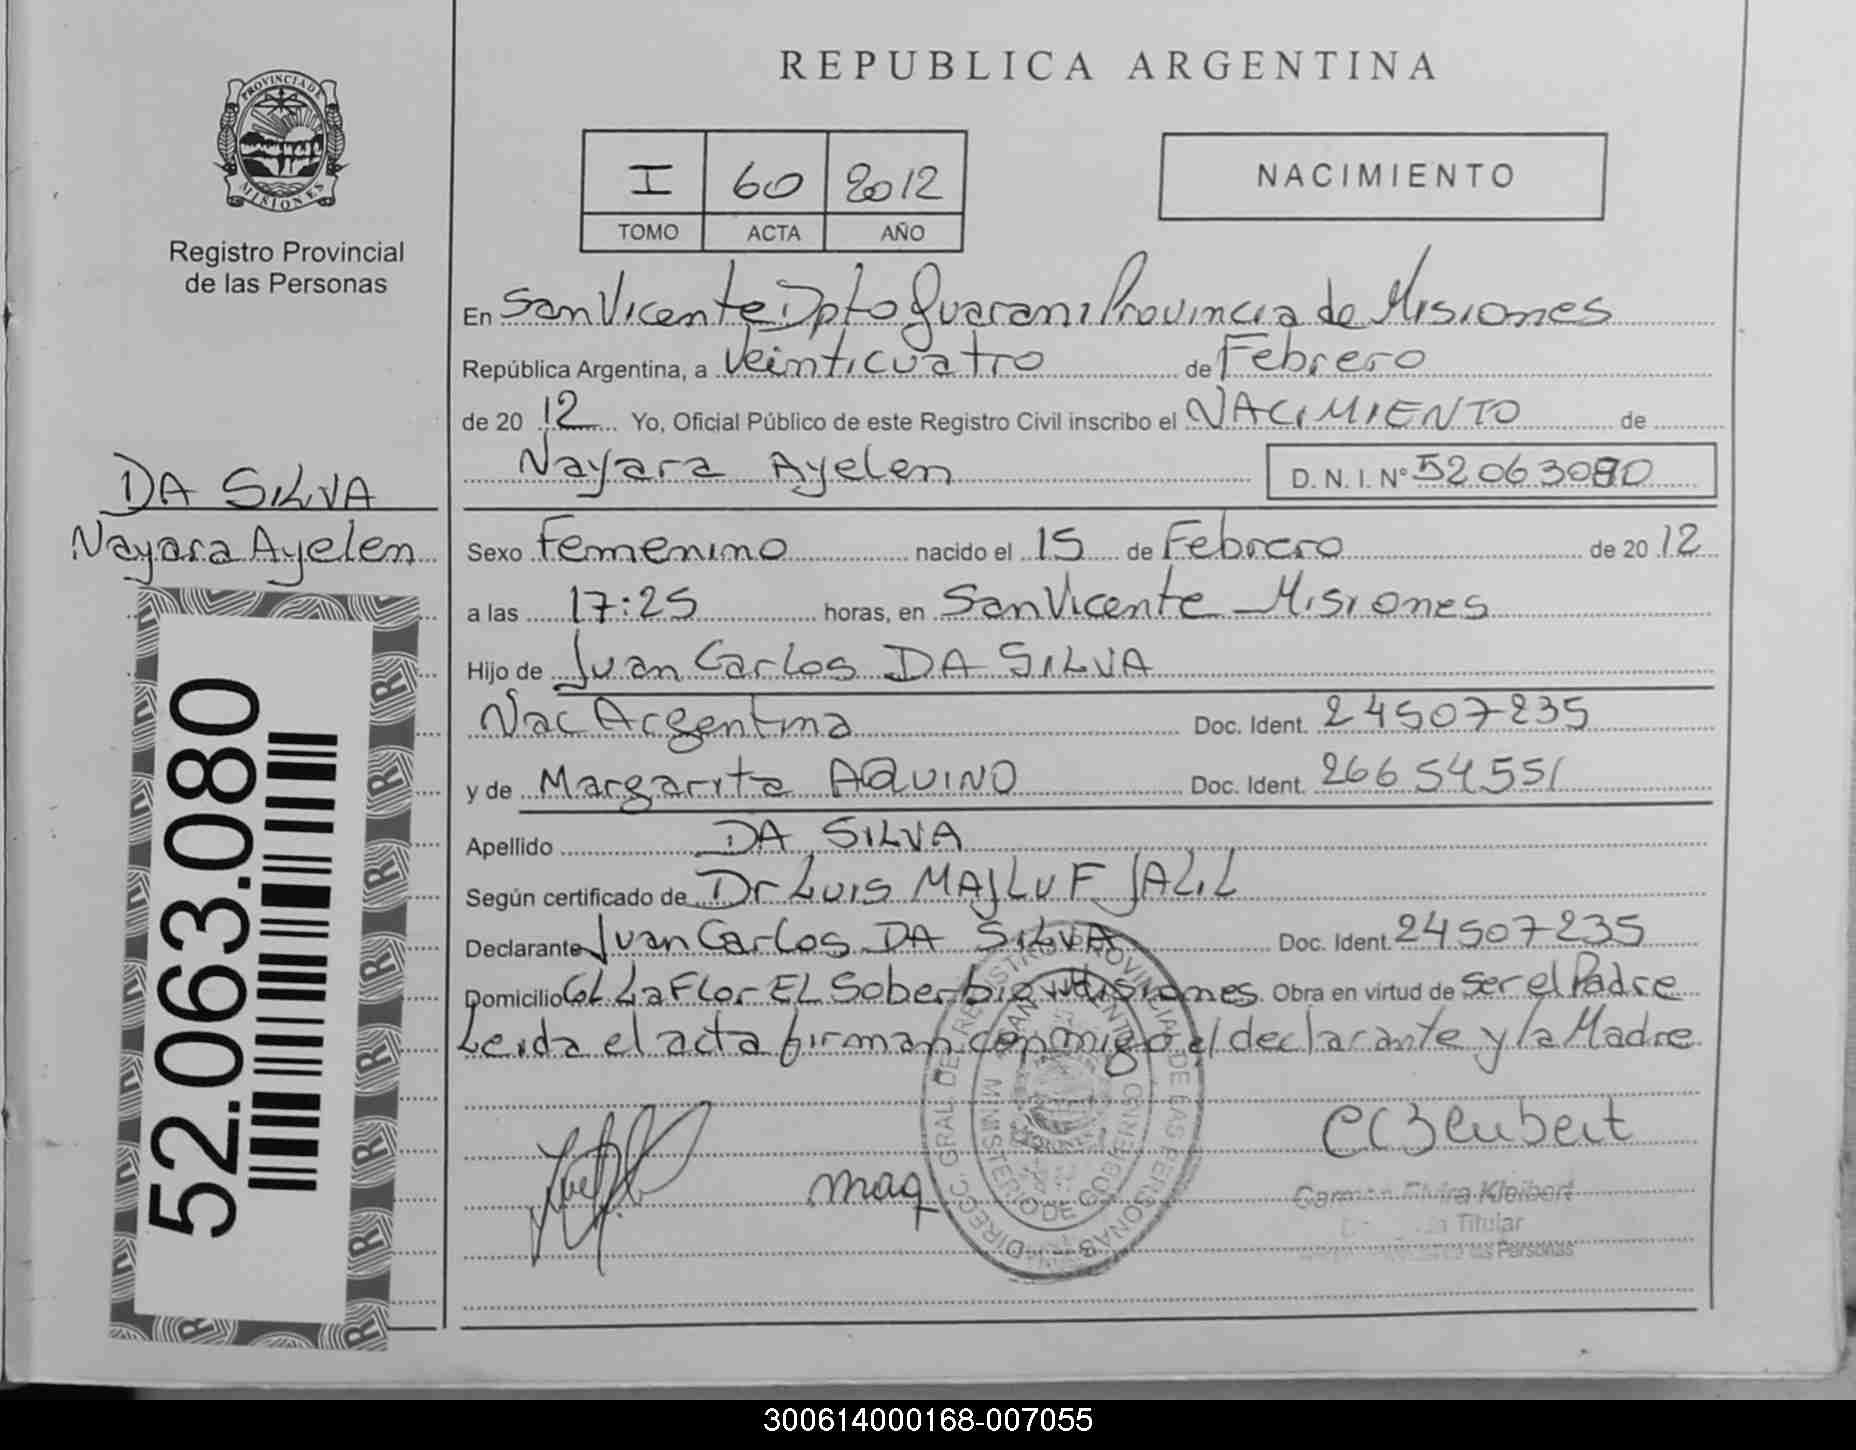 REPUBLICA ARGENTINA
PROVINCIA DE MISIONES
Registro Provincial
de las Personas
I 60 2012
TOMO ACTA AÑO
NACIMIENTO
En San Vicente Dpto Guarani Provincia de Misiones
República Argentina, a Veinticuatro de Febrero
de 2012 Yo, Oficial Público de este Registro Civil inscribo el NACIMIENTO de
Nayara Ayelen D. N. I. Nº 52063080
DA SILVA
Nayara Ayelen
52.063.080
Sexo Femenino nacido el 15 de Febrero de 2012
a las 17:25 horas, en San Vicente - Misiones
Hijo de Juan Carlos DA SILVA
Nac Argentina Doc. Ident. 24507235
y de Margarita AQUINO Doc. Ident. 26654551
Apellido DA SILVA
Según certificado de Dr Luis MAJLUF JALIL
Declarante Juan Carlos DA SILVA Doc. Ident. 24507235
Domicilio GL La Flor EL Soberbio Misiones Obra en virtud de ser el Padre
Leida el acta firman conmigo el declarante y la Madre
DIRECC. GRAL. DE REGISTRO PROVINCIAL DE LAS PERSONAS
MINISTERIO DE GOBIERNO
maq
Carmen Elvira Kleibert
Titular
de las Personas
300614000168-007055